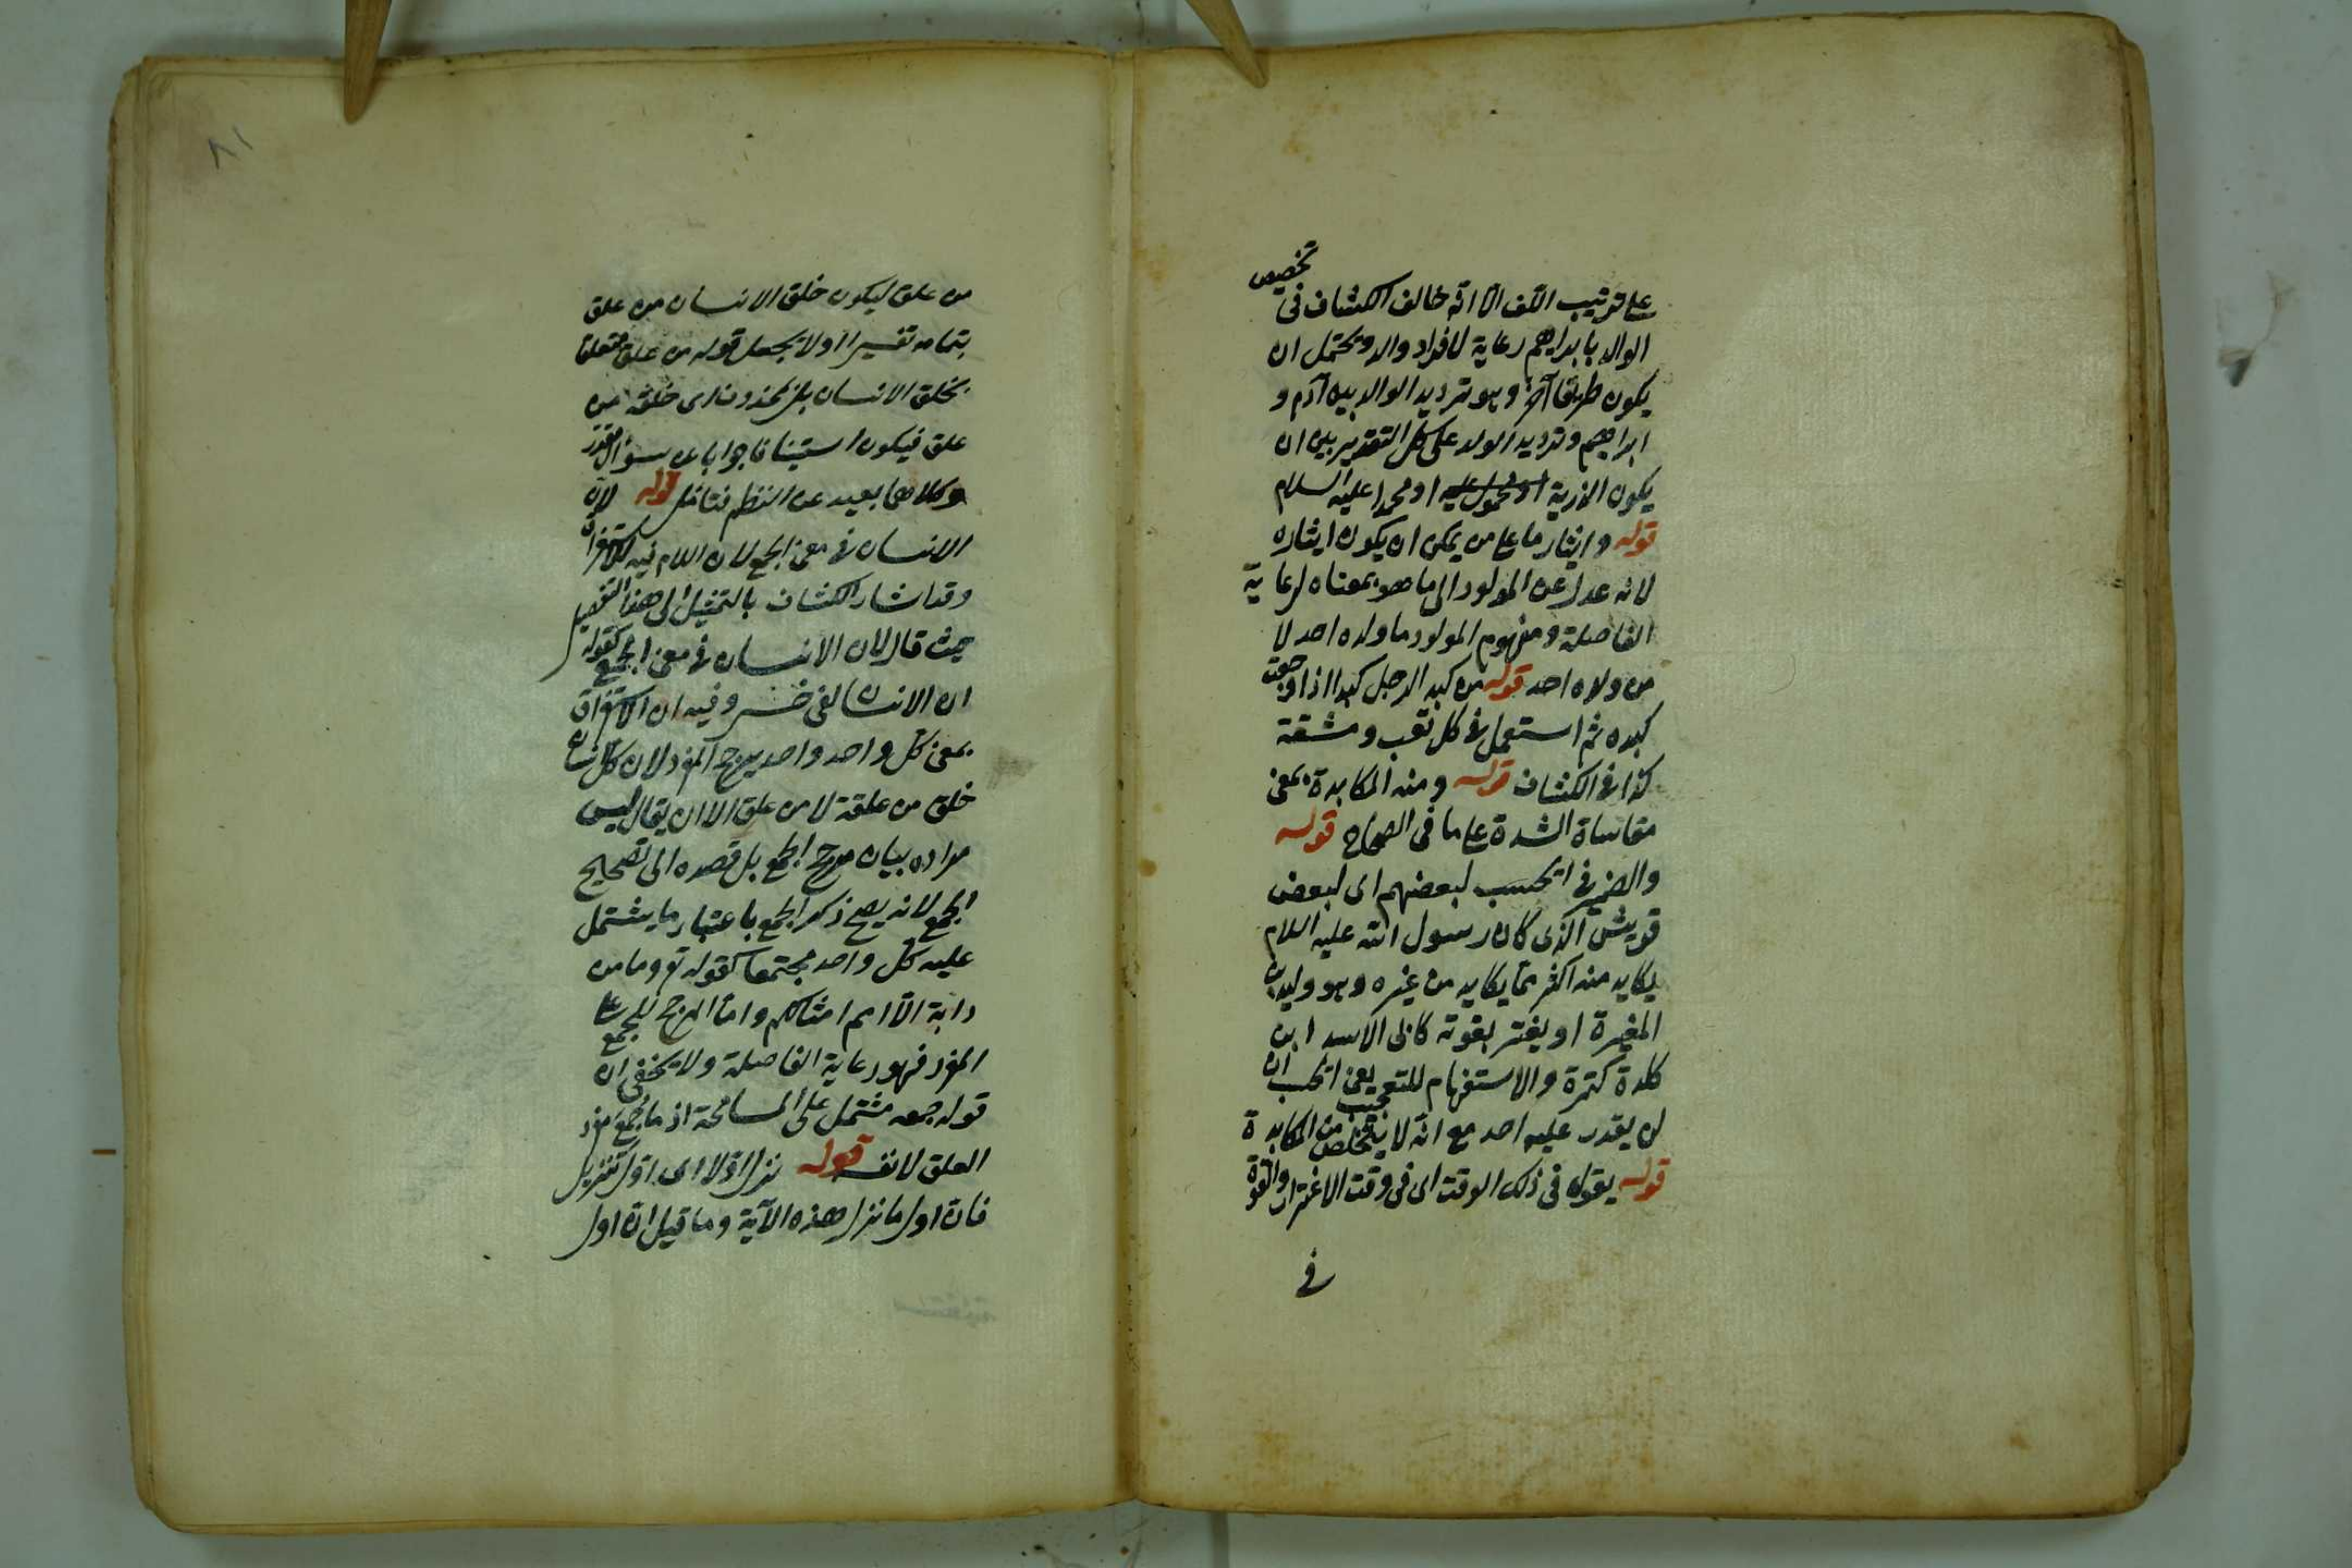 على ترتيب اللف الا انه خالف الكشاف فى تخصيص
الوالد بابراهيم رعاية لافراد والد ويحتمل ان
يكون طريقا آخر وهو ترديد الوالد بين آدم و
ابراهيم وترديد الولد على كل التقدير بين ان
يكون الذرية او محمول عليه او محمدا عليه السلام
قوله وايثار ما على من يمكن ان يكون ايثاره
لانه عدل عن المولود الى ما هو بمعناه لرعاية
الفاصلة ومفهوم المولود ما ولده احد لا
من ولده احد قوله من كبد الرجل كبدا اذا وجعت
كبده ثم استعمل فى كل تعب ومشقة
كذا فى الكشاف قوله ومنه المكابدة بمعنى
مقاساة الشدة على ما فى الصحاح قوله
والضمير فى ايحسب لبعضهم اى لبعض
قريش الذى كان رسول الله عليه السلام
يكابد منه اكثر مما يكابد من غيره وهو وليد بن
المغيرة او يغتر بقوته كابى الاسد ابن
كلدة كتمرة والاستفهام للتعجيب يعنى ايحسب ان
لن يقدر عليه احد مع انه لا يتخلص من المكابدة
قوله يقوله فى ذلك الوقت اى فى وقت الاغترار والقوة
فى
٨١
من علق ليكون خلق الانسان من علق
بتمامه تفسيرا اولا يجعل قوله من علق متعلقا
بخلق الانسان بل بمحذوف اى خلقه من
علق فيكون استينافا جوابا عن سؤال مقدر
وكلاهما بعيد عن النظم فتأمل قوله لان
الانسان فى معنى الجمع لان اللام فيه للاستغراق
وقد اشار الكشاف بالتمثيل الى هذا التفصيل
حيث قال لان الانسان فى معنى الجمع كقوله
ان الانسان لفى خسر وفيه ان الاستغراق
بمعنى كل واحد واحد يرجح المفرد لان كل انسان
خلق من علقة لا من علق الا ان يقال ليس
مراده بيان مرجح الجمع بل قصده الى تصحيح
الجمع لانه يصح ذكر الجمع باعتبار ما يشتمل
عليه كل واحد مجتمعا كقوله تع وما من
دابة الا امم امثالكم واما المرجح للجمع على
المفرد فهو رعاية الفاصلة ولا يخفى ان
قوله جمعه مشتمل على المسامحة اذ ما جمع مفرد
العلق لا نفسه قوله نزل اولا اى اول تنزيل
فان اول ما نزل هذه الآية وما قيل ان اول